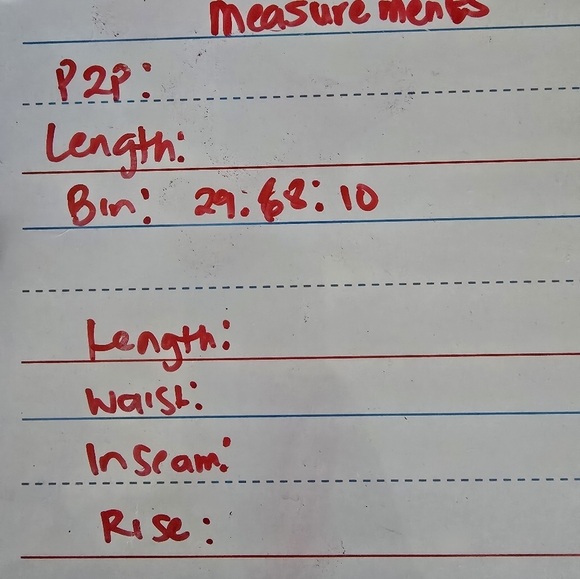 Measurements
P2P:
Length:
Bin: 29:68:10
Length:
Waist:
Inseam:
Rise: